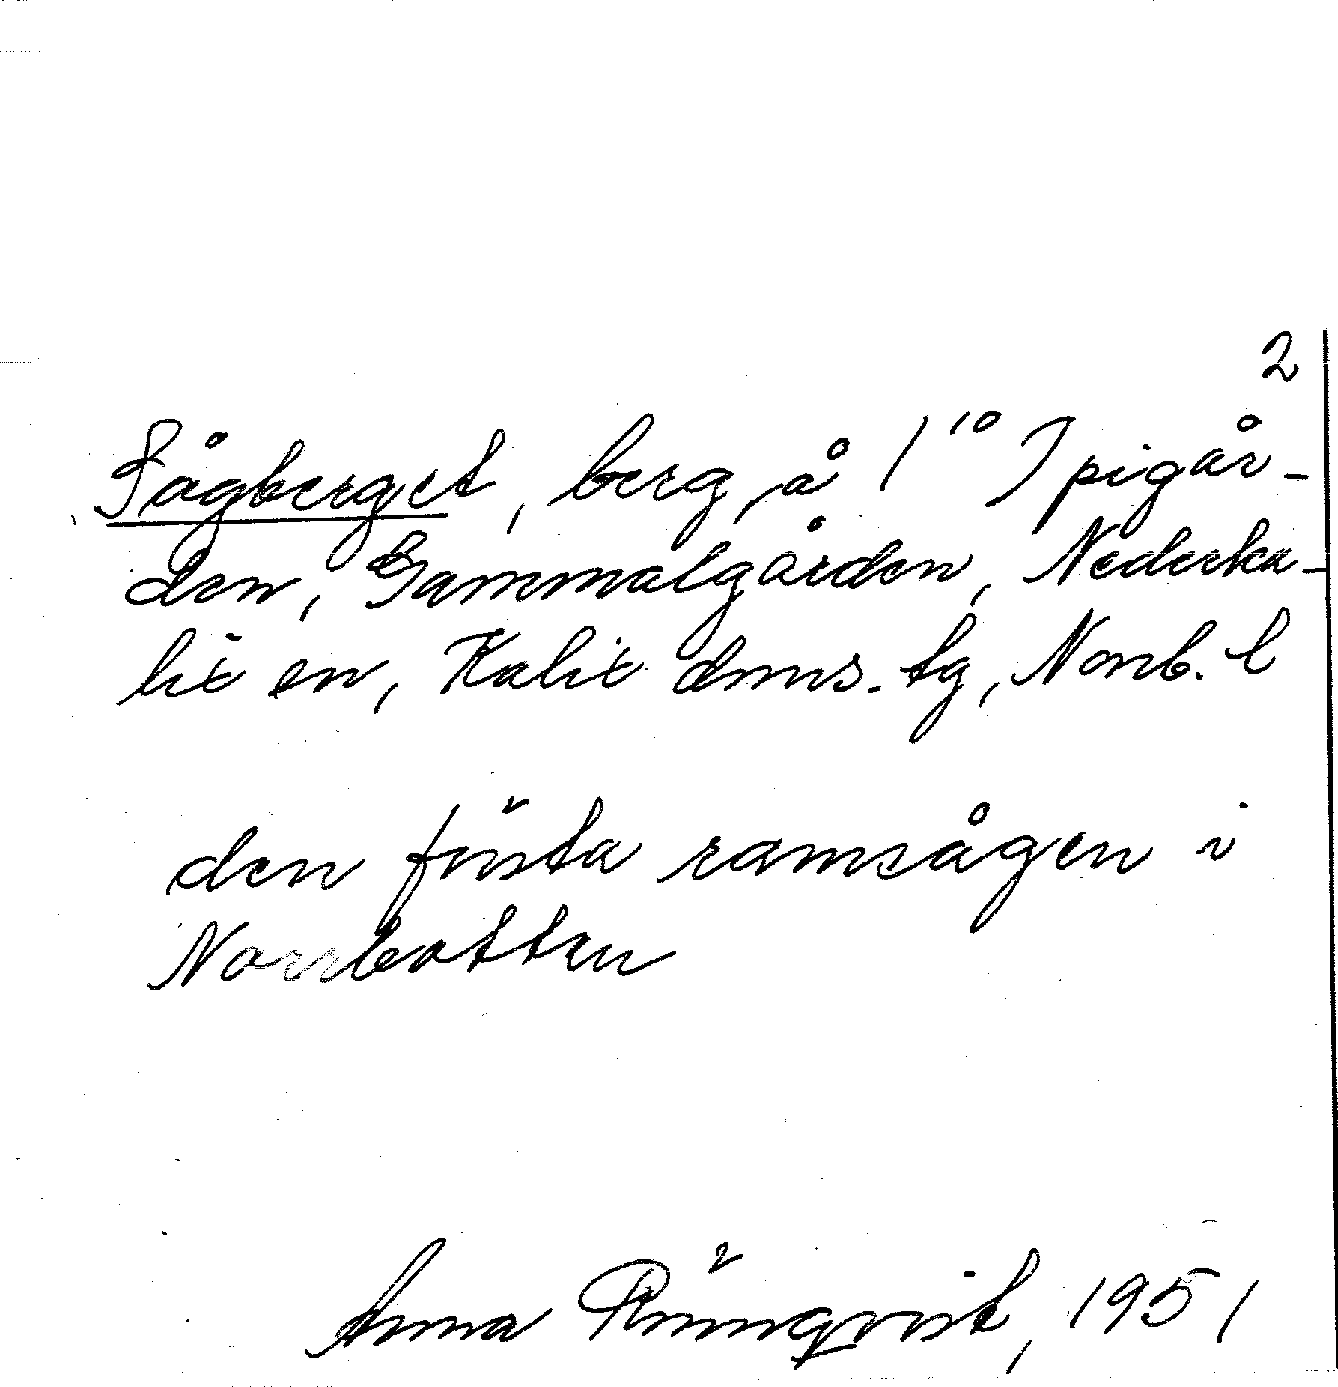 2
Sågberget, berg, å 1'° Spigår-
den, Gammalgården, Nederka-
lix sn, Kalix doms. tg, Norrb. l
den första ramsågen i
Norrbotten
Anna Rönnqvist, 1951